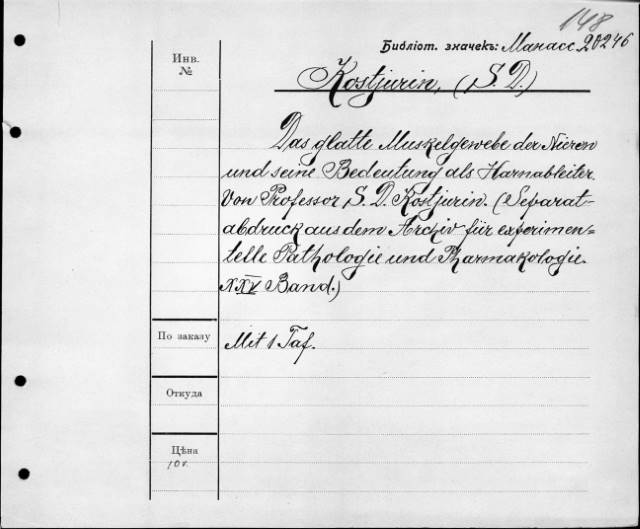 148
Библіот. значекъ: Манасс 20246
Инв.
№
Kostjurin, (S. D.)
Das glatte Muskelgewebe der Nieren
und seine Bedeutung als Harnableiter.
Von Professor S. D. Kostjurin. (Separat-
abdruck aus dem Archiv für experimen=
telle Pathologie und Pharmakologie.
XXV Band.)
По заказу
Mit 1 Taf.
Откуда
Цѣна